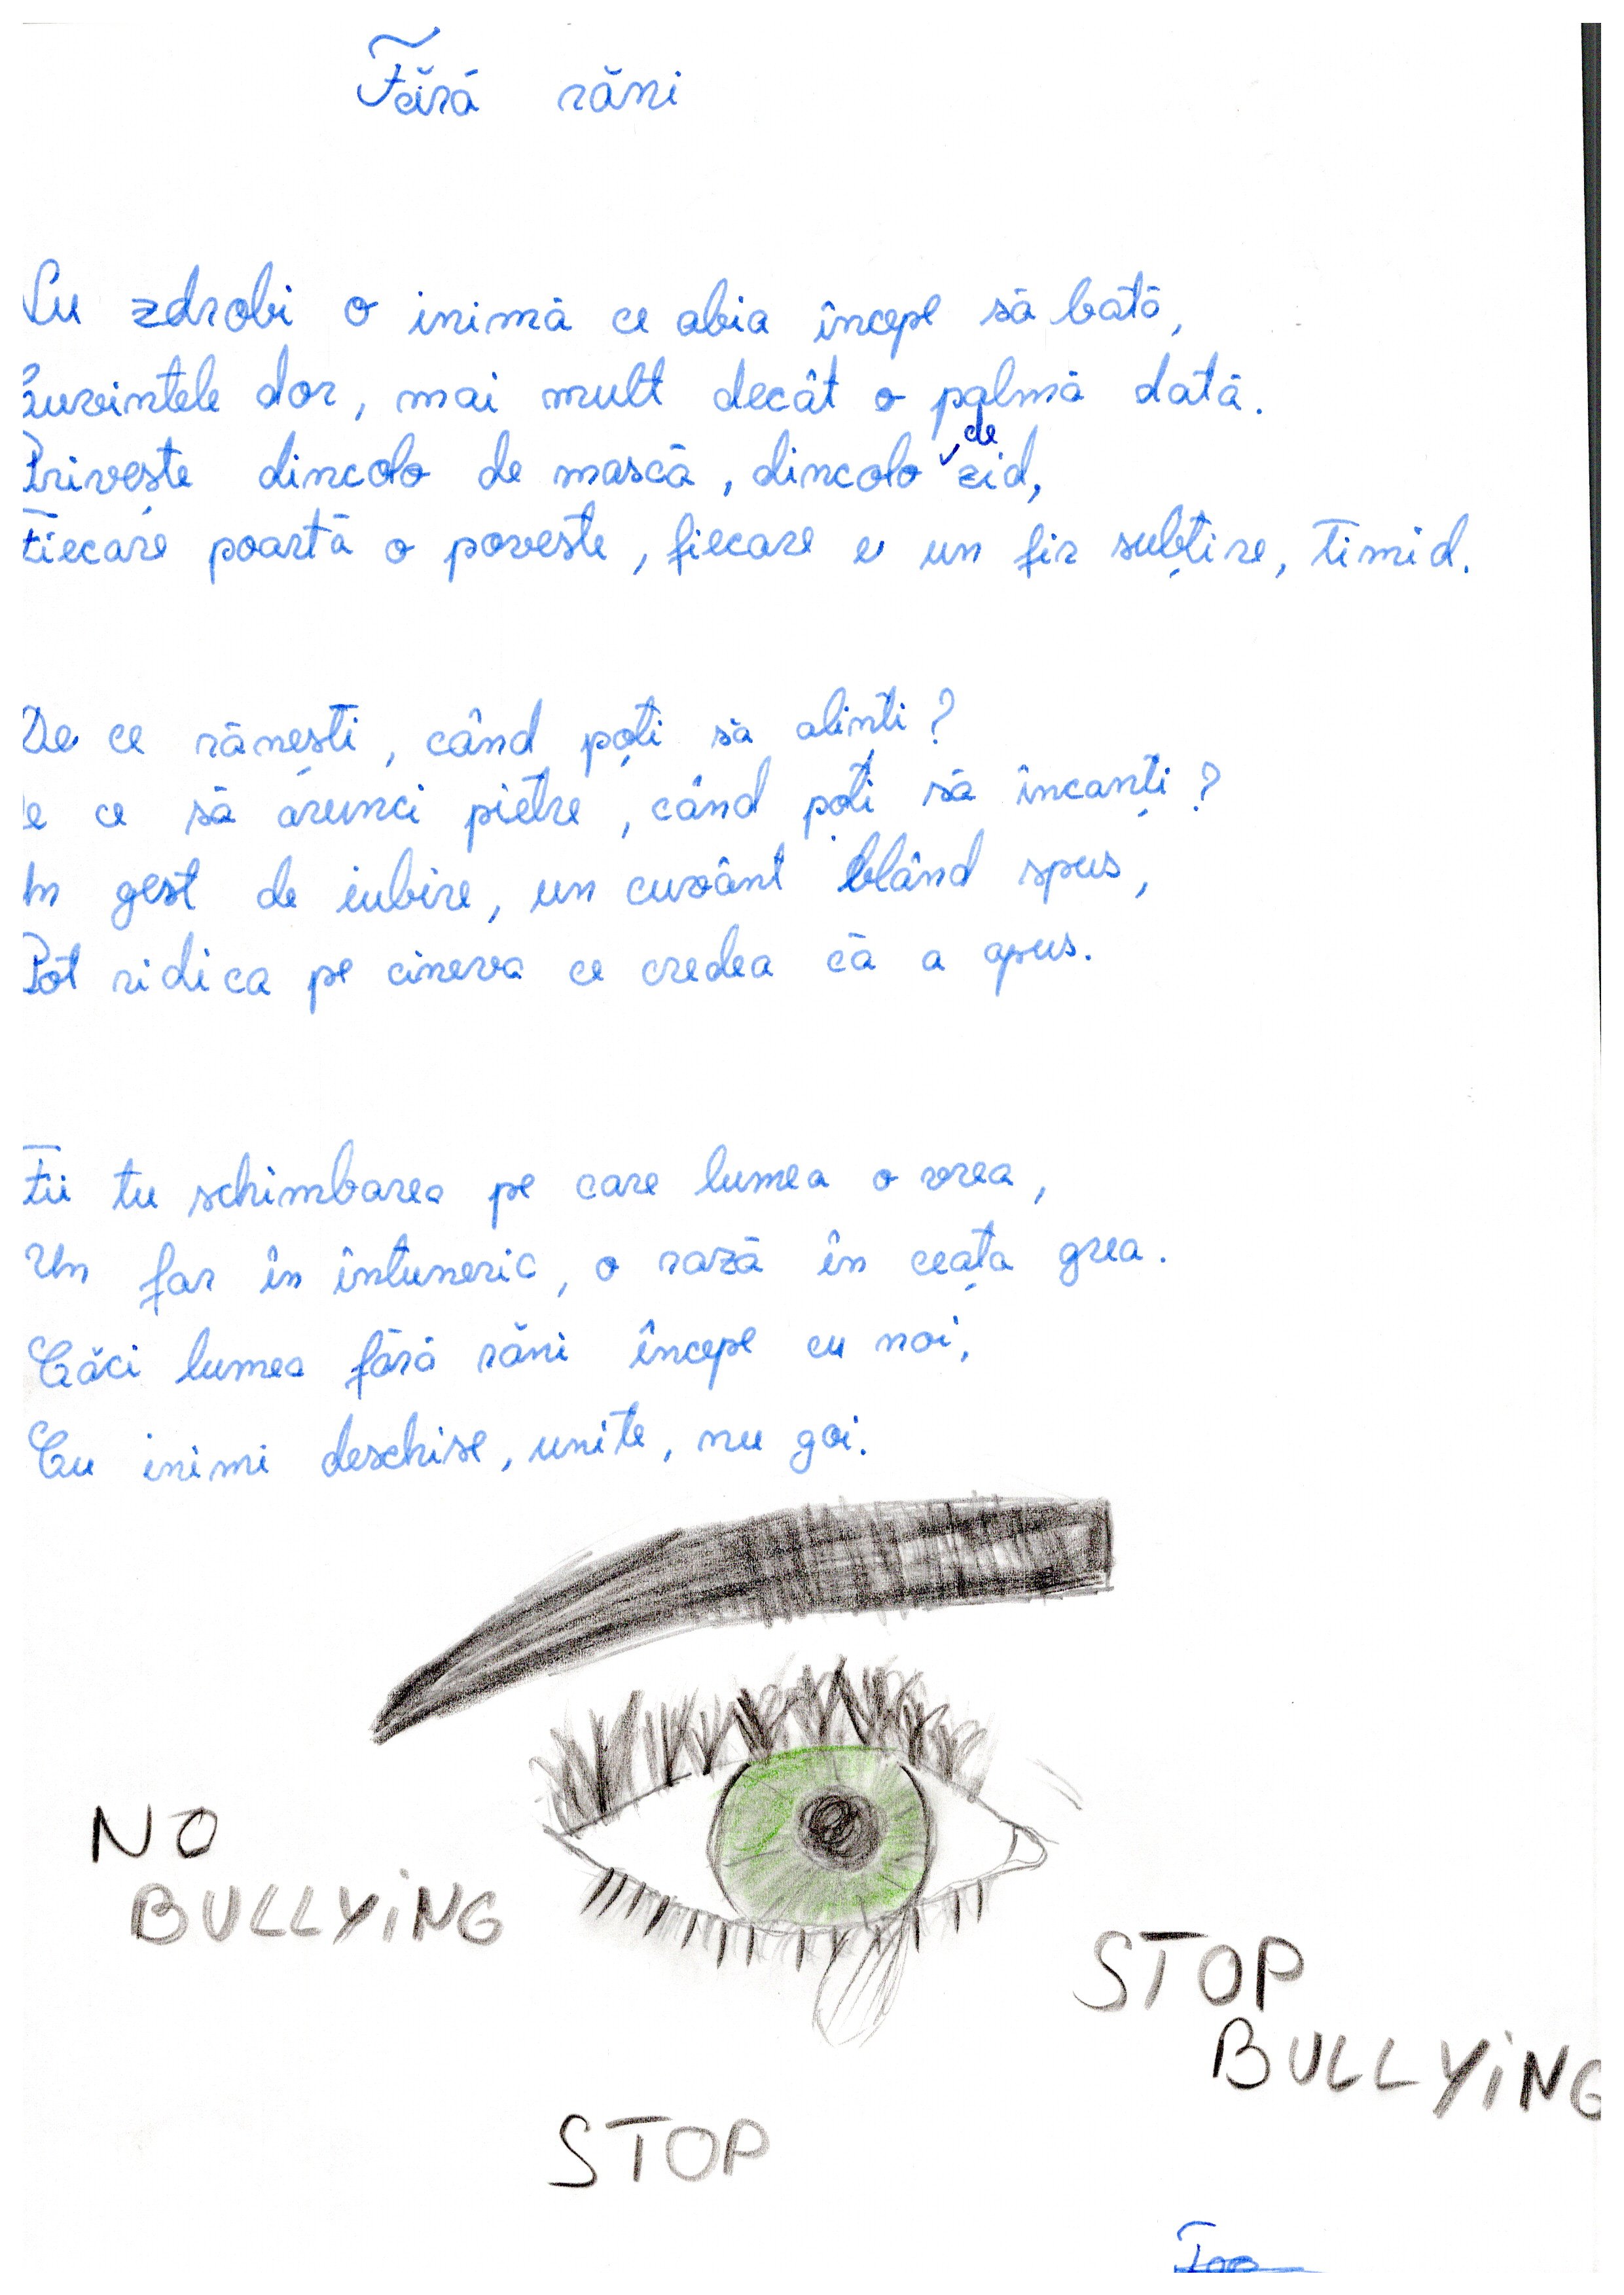 Fără răni
Nu zdrobi o inimă ce abia începe să bată,
Cuvintele dor, mai mult decât o palmă dată.
Privește dincolo de mască, dincolo de zid,
Fiecare poartă o poveste, fiecare e un fir subțire, timid.
De ce rănești, când poți să alinti?
e ce să arunci pietre, când poți să încanți?
Un gest de iubire, un cuvânt blând spus,
Pot ridica pe cineva ce credea că a apus.
Fii tu schimbarea pe care lumea o vrea,
Un far în întuneric, o rază în ceața grea.
Căci lumea fără răni începe cu noi,
Cu inimi deschise, unite, nu goi.
NO
BULLYiNG
STOP
BULLYiNG
STOP